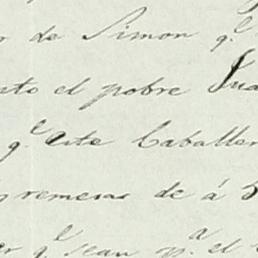 de Simon q.e
el pobre Jua
q.e este Caballer
remesas de á
q.e sean p.a el